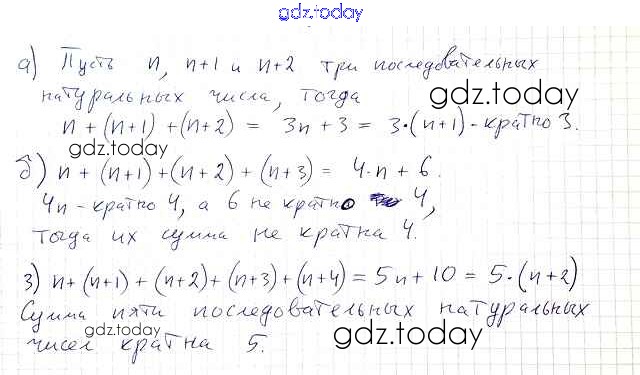 gdz.today
а) Пусть n, n+1 и n+2 три последовательных
натуральных числа, тогда
gdz.today
n + (n+1) + (n+2) = 3n + 3 = 3·(n+1) - кратно 3.
gdz.today
б) n + (n+1) + (n+2) + (n+3) = 4·n + 6.
4n - кратно 4, а 6 не кратно 4,
тогда их сумма не кратна 4.
3) n+(n+1)+(n+2)+(n+3)+(n+4)=5n+10=5·(n+2)
Сумма пяти последовательных натуральных
gdz.today
gdz.today
чисел кратна 5.